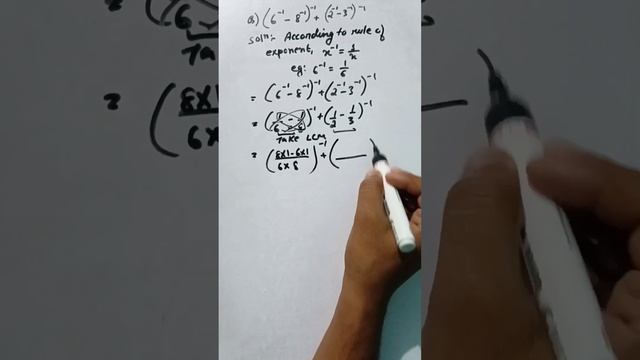 Q) (6⁻¹ - 8⁻¹)⁻¹ + (2⁻¹ - 3⁻¹)⁻¹
solⁿ:- According to rule of
exponent, x⁻¹ = 1/x
eg: 6⁻¹ = 1/6
= (6⁻¹ - 8⁻¹)⁻¹ + (2⁻¹ - 3⁻¹)⁻¹
= (1/6 - 1/8)⁻¹ + (1/2 - 1/3)⁻¹
Take LCM
= ((8×1 - 6×1)/(6×8))⁻¹ + (